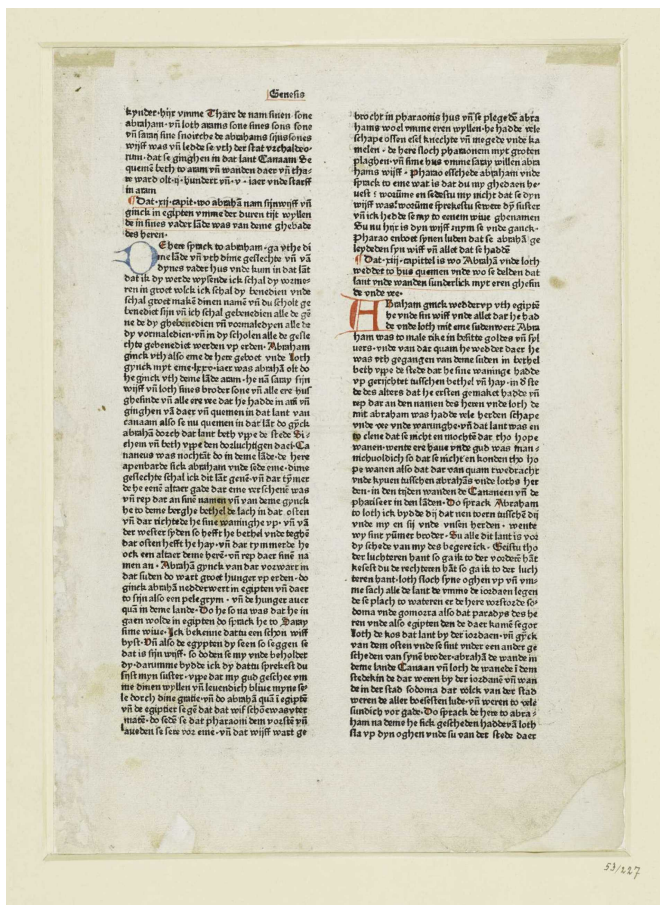 Genesis
kynder·hijr vmme Thare de nam sinen sone
abraham· vn̄ loth arams sone sines sons sone
vn̄ saray sine snoirche de abrahams sijns sones
wijff was vn̄ ledde se vth der stat vr chaldeo-
rum·dat se ginghen in dat lant Canaam Se
quemē beth to aram vn̄ wanden daer vn̄ tha-
re ward olt·ij·hundert vn̄·v·iaer vnde starff
in aram
Dat·xij·capit·wo abrahā nam sijn wijff vn̄
ginck in egipten vmme der duren tijt wyllen
de in sines vader lāde was van deme ghebade
des heren·
DE here sprack to abraham·ga vth e di
me lāde vn̄ vth dime geslechte vn̄ vā
dynes vader hus vnde kum in dat lāt
dat ik dy werde wysende ick schal dy vorme-
ren in groet volck ick schal dy benedien vnde
schal groet makē dinen namē vn̄ du scholt ge
benedit sijn vn̄ ich schal gebenedien alle de gē
ne de dy ghebenedien vn̄ vormaledyen alle de
dy vormaledien·vn̄ in dy scholen alle de gesle
chte gebenediet werden vp erden·Abraham
ginck vth also eme de here geboet vnde Loth
gynck myt eme·lxxv·iaer was abrahā olt do
he ginck vth deme lāde aram·he nā saray sijn
wijff vn̄ loth sines broder sone vn̄ alle ere hus
ghesinde vn̄ alle ere vee dat he hadde in arā vn̄
ginghen vā daer vn̄ quemen in dat lant van
canaam also se nu quemen in dat lāt do gyck
abrahā dorch dat lant beth vppe de stede Si-
chem vn̄ beth vppe den dorluchtigen dael·Ca
naneus was nochtāt do in deme lāde·de here
apenbarde sick abraham vnde sede eme·dime
geslechte schal ick dit lāt geuē·vn̄ dar tymer
de he eenē altaer gade dar eme verschenē was
vn̄ rep dar an sinē namen vn̄ van deme gynck
he to deme berghe bethel de lach in dat osten
vn̄ dar richtede he sine waninghe vp·vn̄ vā
der wester syden so hefft he bethel vnde teghē
dat osten hefft he hay·vn̄ dar tymmerde he
ock een altaer deme herē·vn̄ rep daer sinē na
men an·Abrahā gynck van dar vorwart in
dat suden do wart groet hunger vp erden·do
ginck abrahā nedderwert in egipten vn̄ daer
to sijn also een pelegrym·vn̄ de hunger auer
quā in deme lande·Do he so na was dat he in
gaen wolde in egipten do sprack he to Saray
sime wiue·Ick bekenne dat tu een schon wiff
byst·Vn̄ also de egypten dy seen so seggen se
dat is sijn wijff·so doden se my vnde beholdet
dy·darumme bydde ick dy dat tu sprekest du
sijst myn suster·vppe dat my gud geschee vm
me dinen wyllen vn̄ leuendich bliue myne se
le dorch dine gratie·vn̄ do abrahā quā ī egiptē
vn̄ de egiptier segē dat dat wif schōe was vter
matē·do sedē se dat pharaoni dem vorstē vn̄
laueden se sere vor eme·vn̄ dat wijff wart ge
brocht in pharaonis hus vn̄ se plegedē abra
hams woel vmme eren wyllen·he hadde vele
schape ossen esel knechte vn̄ megede vnde ka
melen·de here sloch pharaonem myt groten
plaghen·vn̄ sine hus vmme saray willen abra
hams wijff·Pharao esschede abraham vnde
sprack to eme wat is dat du my ghedaen he-
uest·worūme en sedestu my nicht dat se dyn
wijff was·worūme sprekestu se were dy suster
vn̄ ick hedde se my to eneme wiue ghenamen
Su nu hijr is dyn wijff nym se vnde ganck·
Pharao enboet synen luden dat se abrahā ge
leydeden syn wiff vn̄ allet dat se hadde
Dat·xiij·capittel is wo Abrahā vnde loth
weddet to hus quemen vnde wo se deelden dat
lant vnde wanden sunderlick myt eren ghesin
de vnde vee·
ABraham ginck wedder vp vth egiptē
he vnde sin wiff vnde allet dat he had
de vnde loth mit eme sudenwert Abra
ham was to male rike in besitte goldes vn̄ syl
uers·vnde van dar quam he wedder daer he
was vth gegangen van deme suden in bethel
beth vppe de stede dat he sine waninge hadde
vp gerichtet tusschen bethel vn̄ hay·in d̄ ste
de des alters dat he ersten gemaket hadde vn̄
rep dar an den namen des heren vnde loth de
mit abraham was hadde vele herden schape
vnde vee vnde waninghe·vn̄ dat lant was en
to clene dat se nicht en mochtē dar tho hope
wanen·wente ere haue vnde gud was man i
nichuoldich so dat se nicht en konden tho ho
pe wanen also dat dar van quam twedracht
vnde kyuen tusschen abrahās vnde loths her
den·in den tijden wanden de Cananeen vn̄ de
phariseer in den lāden·Do sprack Abraham
to loth ick bydde dij dat nen toern tusschē dij
vnde my en sij vnde vnsen herden·wente
wy sint yūmer broder·Su alle dit lant is vor
dy schede van my des begere ick·Geistu tho
der luchteren hant so ga ik to der vorderē hāt
kesest du de rechteren hāt so ga ik to der luch
teren hant·loth sloch syne oghen vp vn̄ vm-
me sach alle de lant de vmme de iordaen legen
de se plach to wateren er de here vorstorde so-
doma vnde gomorra also dat paradys des he
ren vnde also egipten den de daer kamē segor
Loth de kos dat lant by der iordaen·vn̄ gyck
van dem osten vnde se sint vnder een ander ge
scheden van synē broder·abrahā de wande in
deme lande Canaan vn̄ loth de wanede ī dem
stedekin de dar weren by der iordanē vn̄ wan
de in der stad sodoma dat volck van der stad
weren de aller boesesten lude·vn̄ weren to vele
sundich vor gade·Do sprack de here to abra-
ham na deme he sick gescheden hadde vā loth
sla vp dyn oghen vnde su van der stede daer
53/227